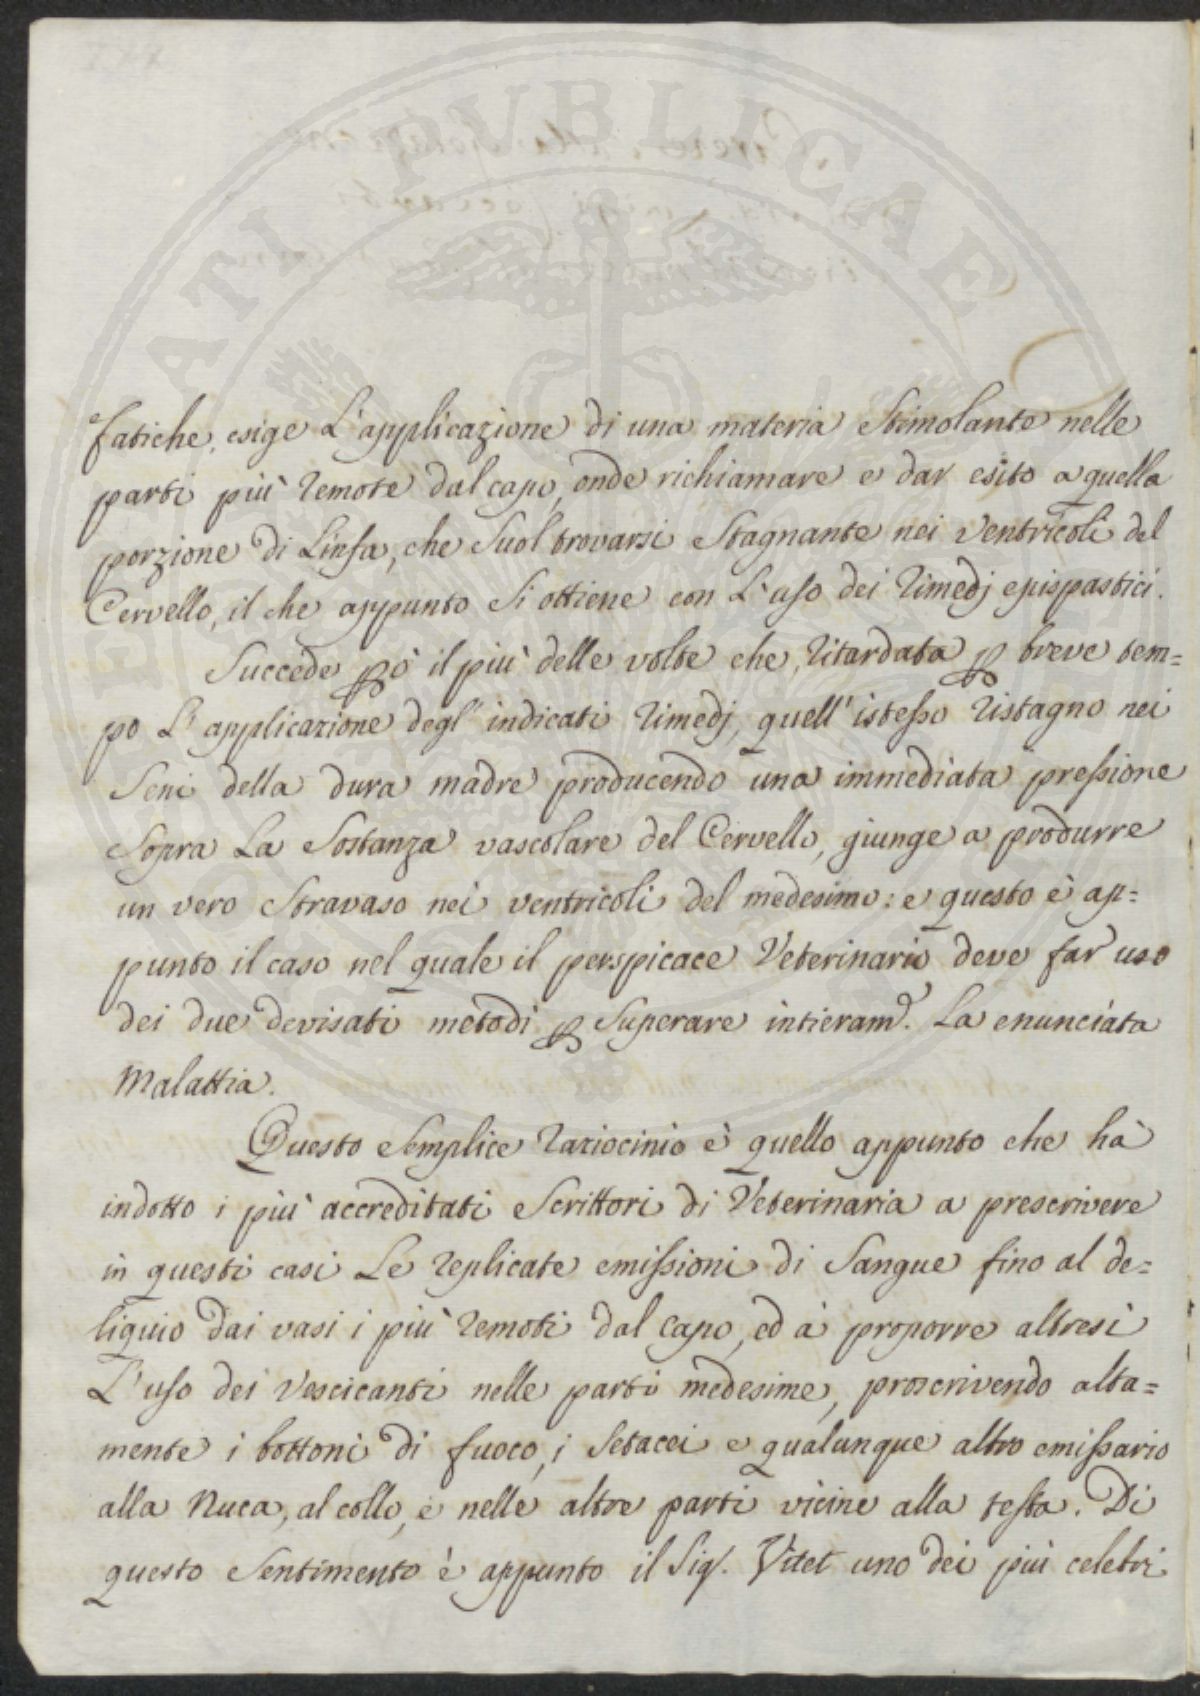 fatiche, esige L'applicazione di una materia Stimolante nelle
parti più remote dal capo, onde richiamare e dar esito a quella
porzione di Linfa, che Suol trovarsi Stagnante nei Ventricoli del
Cervello, il che appunto Si ottiene con L'uso dei rimedj epispastici.
Succede però il più delle volte che, ritardata p breve tem=
po L'applicazione degl' indicati rimedj, quell' istesso ristagno nei
Seni della dura madre producendo una immediata pressione
Sopra La Sostanza vascolare del Cervello, giunge a produrre
un vero Stravaso nei ventricoli del medesimo: e questo è ap=
punto il caso nel quale il perspicace Veterinario deve far uso
dei due devisati metodi p Superare intieram.e La enunciata
Malattia.
Questo Semplice raziocinio è quello appunto che hà
indotto i più accreditati Scrittori di Veterinaria a prescrivere
in questi casi Le replicate emissioni di Sangue fino al de=
liquio dai vasi i più remoti dal capo, ed à proporre altresì
L'uso dei Vescicanti nelle parti medesime, proscrivendo alta=
mente i bottoni di fuoco, i Setacei e qualunque altro emissario
alla Nuca, al collo, e nelle altre parti vicine alla testa. Di
questo Sentimento è appunto il Sig.r Vitet uno dei più celebri
PUBLICAE